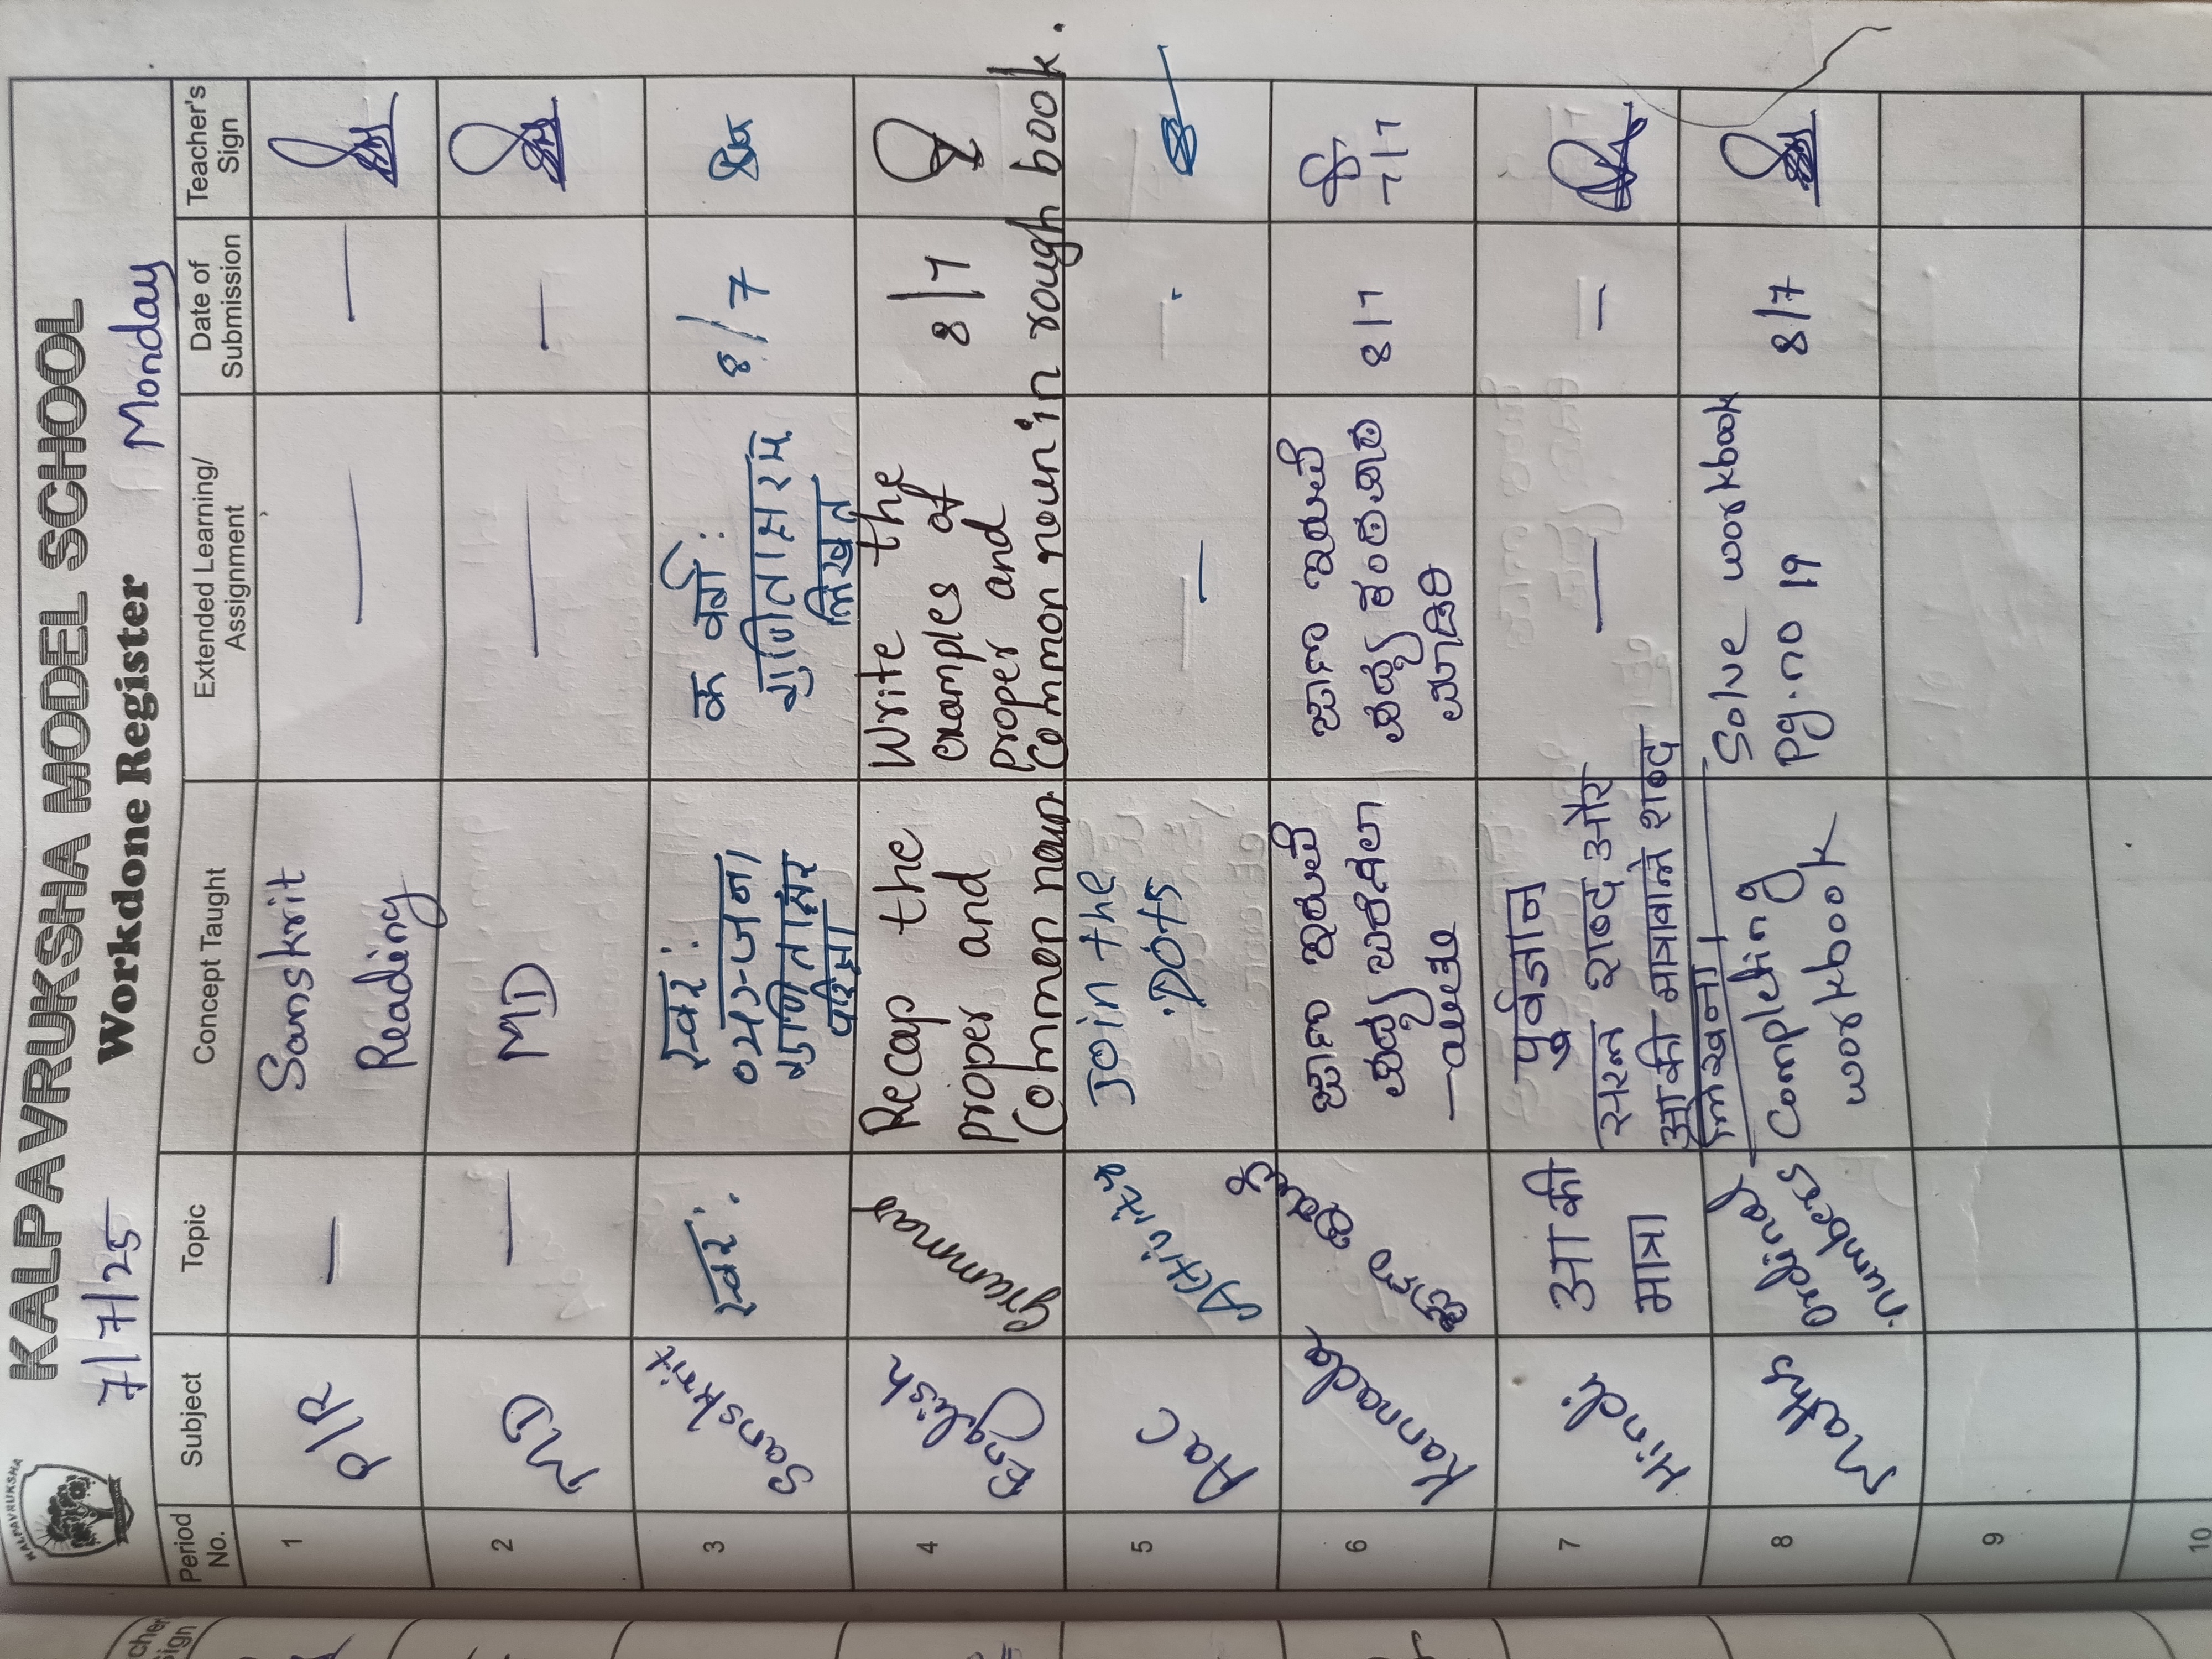 KALPAVRUKSHA
KALPAVRUKSHA MODEL SCHOOL
7/7/25 Workdone Register Monday
Period No. Subject Topic Concept Taught Extended Learning/ Assignment Date of Submission Teacher's Sign
1 P/R — Sanskrit — —
Reading
2 MD — MD — —
3 Sanskrit स्वरः स्वरः क वर्गः 8/7
गुणिताक्षर गुणिताक्षराणि
लिखत
4 English Grammar Recap the Write the 8/7
proper and examples of
Common noun proper and
Common noun in rough book.
5 Aac Activity Join the — —
Dots
6 Kannada ಜಾಣ ಇರುವೆ ಜಾಣ ಇರುವೆ 8/7 7/7
ಪದ್ಯ ಪದ್ಯ ಕಂಠಪಾಠ
ಮಾಡಿರಿ
7 Hindi आ की पुर्वज्ञान — —
मात्रा सरल शब्द और
आ की मात्रावाले शब्द
लिखना
8 Maths Ordinal Completing Solve workbook 8/7
numbers workbook Pg.no 19
9
10